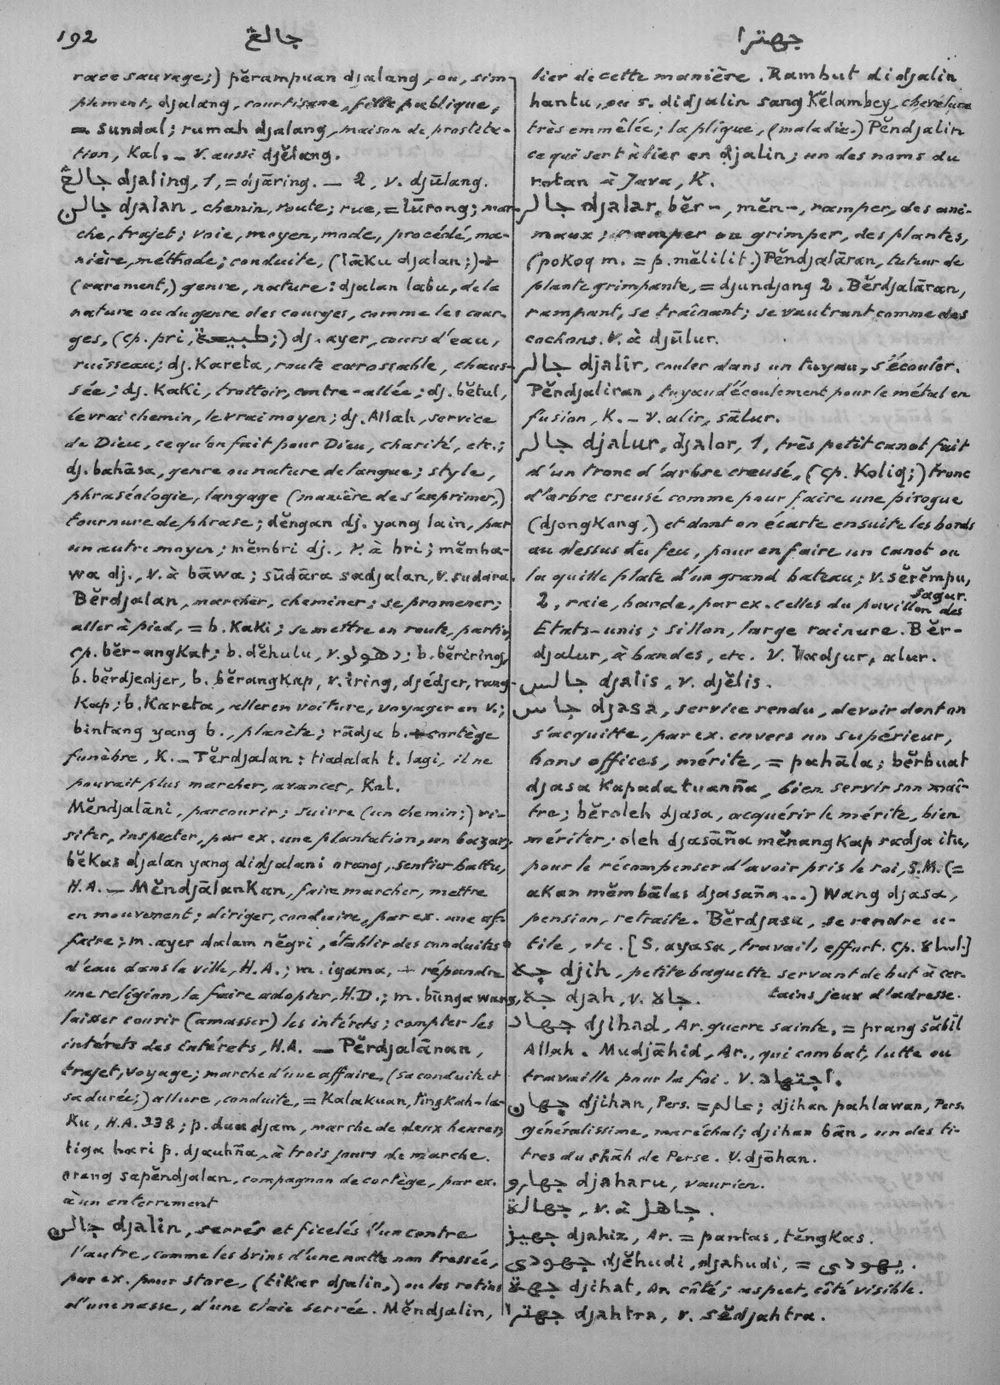 192
جالڠ
جهترا
race sauvage;) pĕrampuan djalang, ou, sim-
plement, djalang, courtisane, fille publique,
= sundal; rumah djalang, maison de prostitu-
tion, Kal. — V. aussi djĕlang.
جالڠ djaling, 1, = djāring. — 2, v. djūlang.
جالن djalan, chemin, route; rue, = lūrong; mar-
che, trajet; voie, moyen, mode, procédé, ma-
nière, méthode; conduite, (lāku djalan;)
(rarement,) genre, nature: djalan labu, de la
nature ou du genre des courges, comme les cour-
ges, (cp. pri, طبيعة;) dj. ayer, cours d'eau,
ruisseau; dj. Kareta, route carossable, chaus-
sée; dj. Kaki, trottoir, contre-allée; dj. bĕtul,
le vrai chemin, le vrai moyen; dj. Allah, service
de Dieu, ce qu'on fait pour Dieu, charité, etc.;
dj. bahāsa, genre ou nature de langue; style,
phraséologie, langage (manière de s'exprimer,)
tournure de phrase; dĕngan dj. yang lain, par
un autre moyen; mĕmbri dj., v. à bri; mĕmba-
wa dj., v. à bāwa; sūdāra sadjalan, v. sudara.
Bĕrdjalan, marcher, cheminer; se promener;
aller à pied, = b. Kaki; se mettre en route, partir,
cp. bĕr-angkat; b. dĕhulu, v. دهولو; b. bĕriring,
b. bĕrdjedjer, b. bĕrangkap, v. iring, djédjer, rang-
Kap; b. Kareta, aller en voiture, voyager en v.;
bintang yang b., planète; rādja b. cortège
funèbre, K. — Tĕrdjalan: tiadalah t. lagi, il ne
pouvait plus marcher, avancer, Kal.
Mĕndjalāni, parcourir; suivre (un chemin;) vi-
siter, inspecter, par ex. une plantation, un bazar,
bĕkas djalan yang didjalani orang, sentier battu,
H.A. — Mĕndjālankan, faire marcher, mettre
en mouvement; diriger, conduire, par ex. une af-
faire; m. ayer dalam nĕgri, établir des conduites
d'eau dans la ville, H.A.; m. igama, répandre
une religion, la faire adopter, H.D.; m. būnga wang,
laisser courir (amasser) les intérêts; compter les
intérêts des intérêts, H.A. — Pĕrdjalānan,
trajet, voyage; marche d'une affaire, (sa conduite et
sa durée;) allure, conduite, = Kalakuan, tingkah-la-
Ku, H.A. 338; p. dua djam, marche de deux heures;
tiga hari p. djauhña, à trois jours de marche.
orang sapĕndjalan, compagnon de cortège, par ex.
à un enterrement
جالن djalin, serrés et ficelés l'un contre
l'autre, comme les brins d'une natte non tressée,
par ex. pour store, (tikar djalin,) ou les rotins
d'une nasse, d'une claie serrée. Mĕndjalin,
lier de cette manière. Rambut didjalin
hantu, ou s. didjalin sang Kĕlambey, chevelure
très emmêlée; la plique, (maladie.) Pĕndjalin
ce qui sert à lier en djalin; un des noms du
rotan à Java, K.
جالر djalar, bĕr-, mĕn-, ramper, des ani-
maux; ramper ou grimper, des plantes,
(pokoq m. = p. mĕlilit.) Pĕndjalāran, tuteur de
plante grimpante, = djundjong 2. Bĕrdjalāran,
rampant, se traînant; se vautrant comme des
cochons. V. à djūlur.
جالر djalir, couler dans un tuyau, s'écouler.
Pĕndjaliran, tuyau d'écoulement pour le métal en
fusion, K. — V. alir, sālur.
جالر djalur, djalor, 1, très petit canot fait
d'un tronc d'arbre creusé, (cp. Koliq;) tronc
d'arbre creusé comme pour faire une pirogue
(djongkong,) et dont on écarte ensuite les bords
au dessus du feu, pour en faire un canot ou
la quille plate d'un grand bateau; v. sĕrĕmpu,
sagur.
2, raie, bande, par ex. celles du pavillon des
Etats-unis; sillon, large rainure. Bĕr-
djalur, à bandes, etc. V. ladjur, alur.
جالس djalis, v. djĕlis.
جاس djasa, service rendu, devoir dont on
s'acquitte, par ex. envers un supérieur,
bons offices, mérite, = pahāla; bĕrbuat
djasa Kapada tuanña, bien servir son maî-
tre; bĕroleh djasa, acquérir le mérite, bien
mériter; oleh djasāña mĕnangkap radja itu,
pour le récompenser d'avoir pris le roi, S.M. (=
akan mĕmbālas djasaña...) Wang djasa,
pension, retraite. Bĕrdjasa, se rendre u-
tile, etc. [S. ayasa, travail, effort. Cp. ]
djih, petite baguette servant de but à cer-
tains jeux d'adresse.
djah, v. جاه.
جهاد djihad, Ar. guerre sainte, = prang sābīl
Allah. Mudjāhid, Ar., qui combat, lutte ou
travaille pour la foi. V. اجتهاد.
جهان djihan, Pers. = عالم; djihan pahlawan, Pers.
généralissime, maréchal; djihan bān, un des ti-
tres du shāh de Perse. V. djōhan.
جهارو djaharu, vaurien.
جهالة, v. à جاهل.
جهيز djahiz, Ar. = pantas, tĕngkas.
جهودي djĕhudi, djahudi, = يهودي.
جهة djihat, Ar. côté; aspect, côté visible.
جهترا djahtra, v. sĕdjahtra.